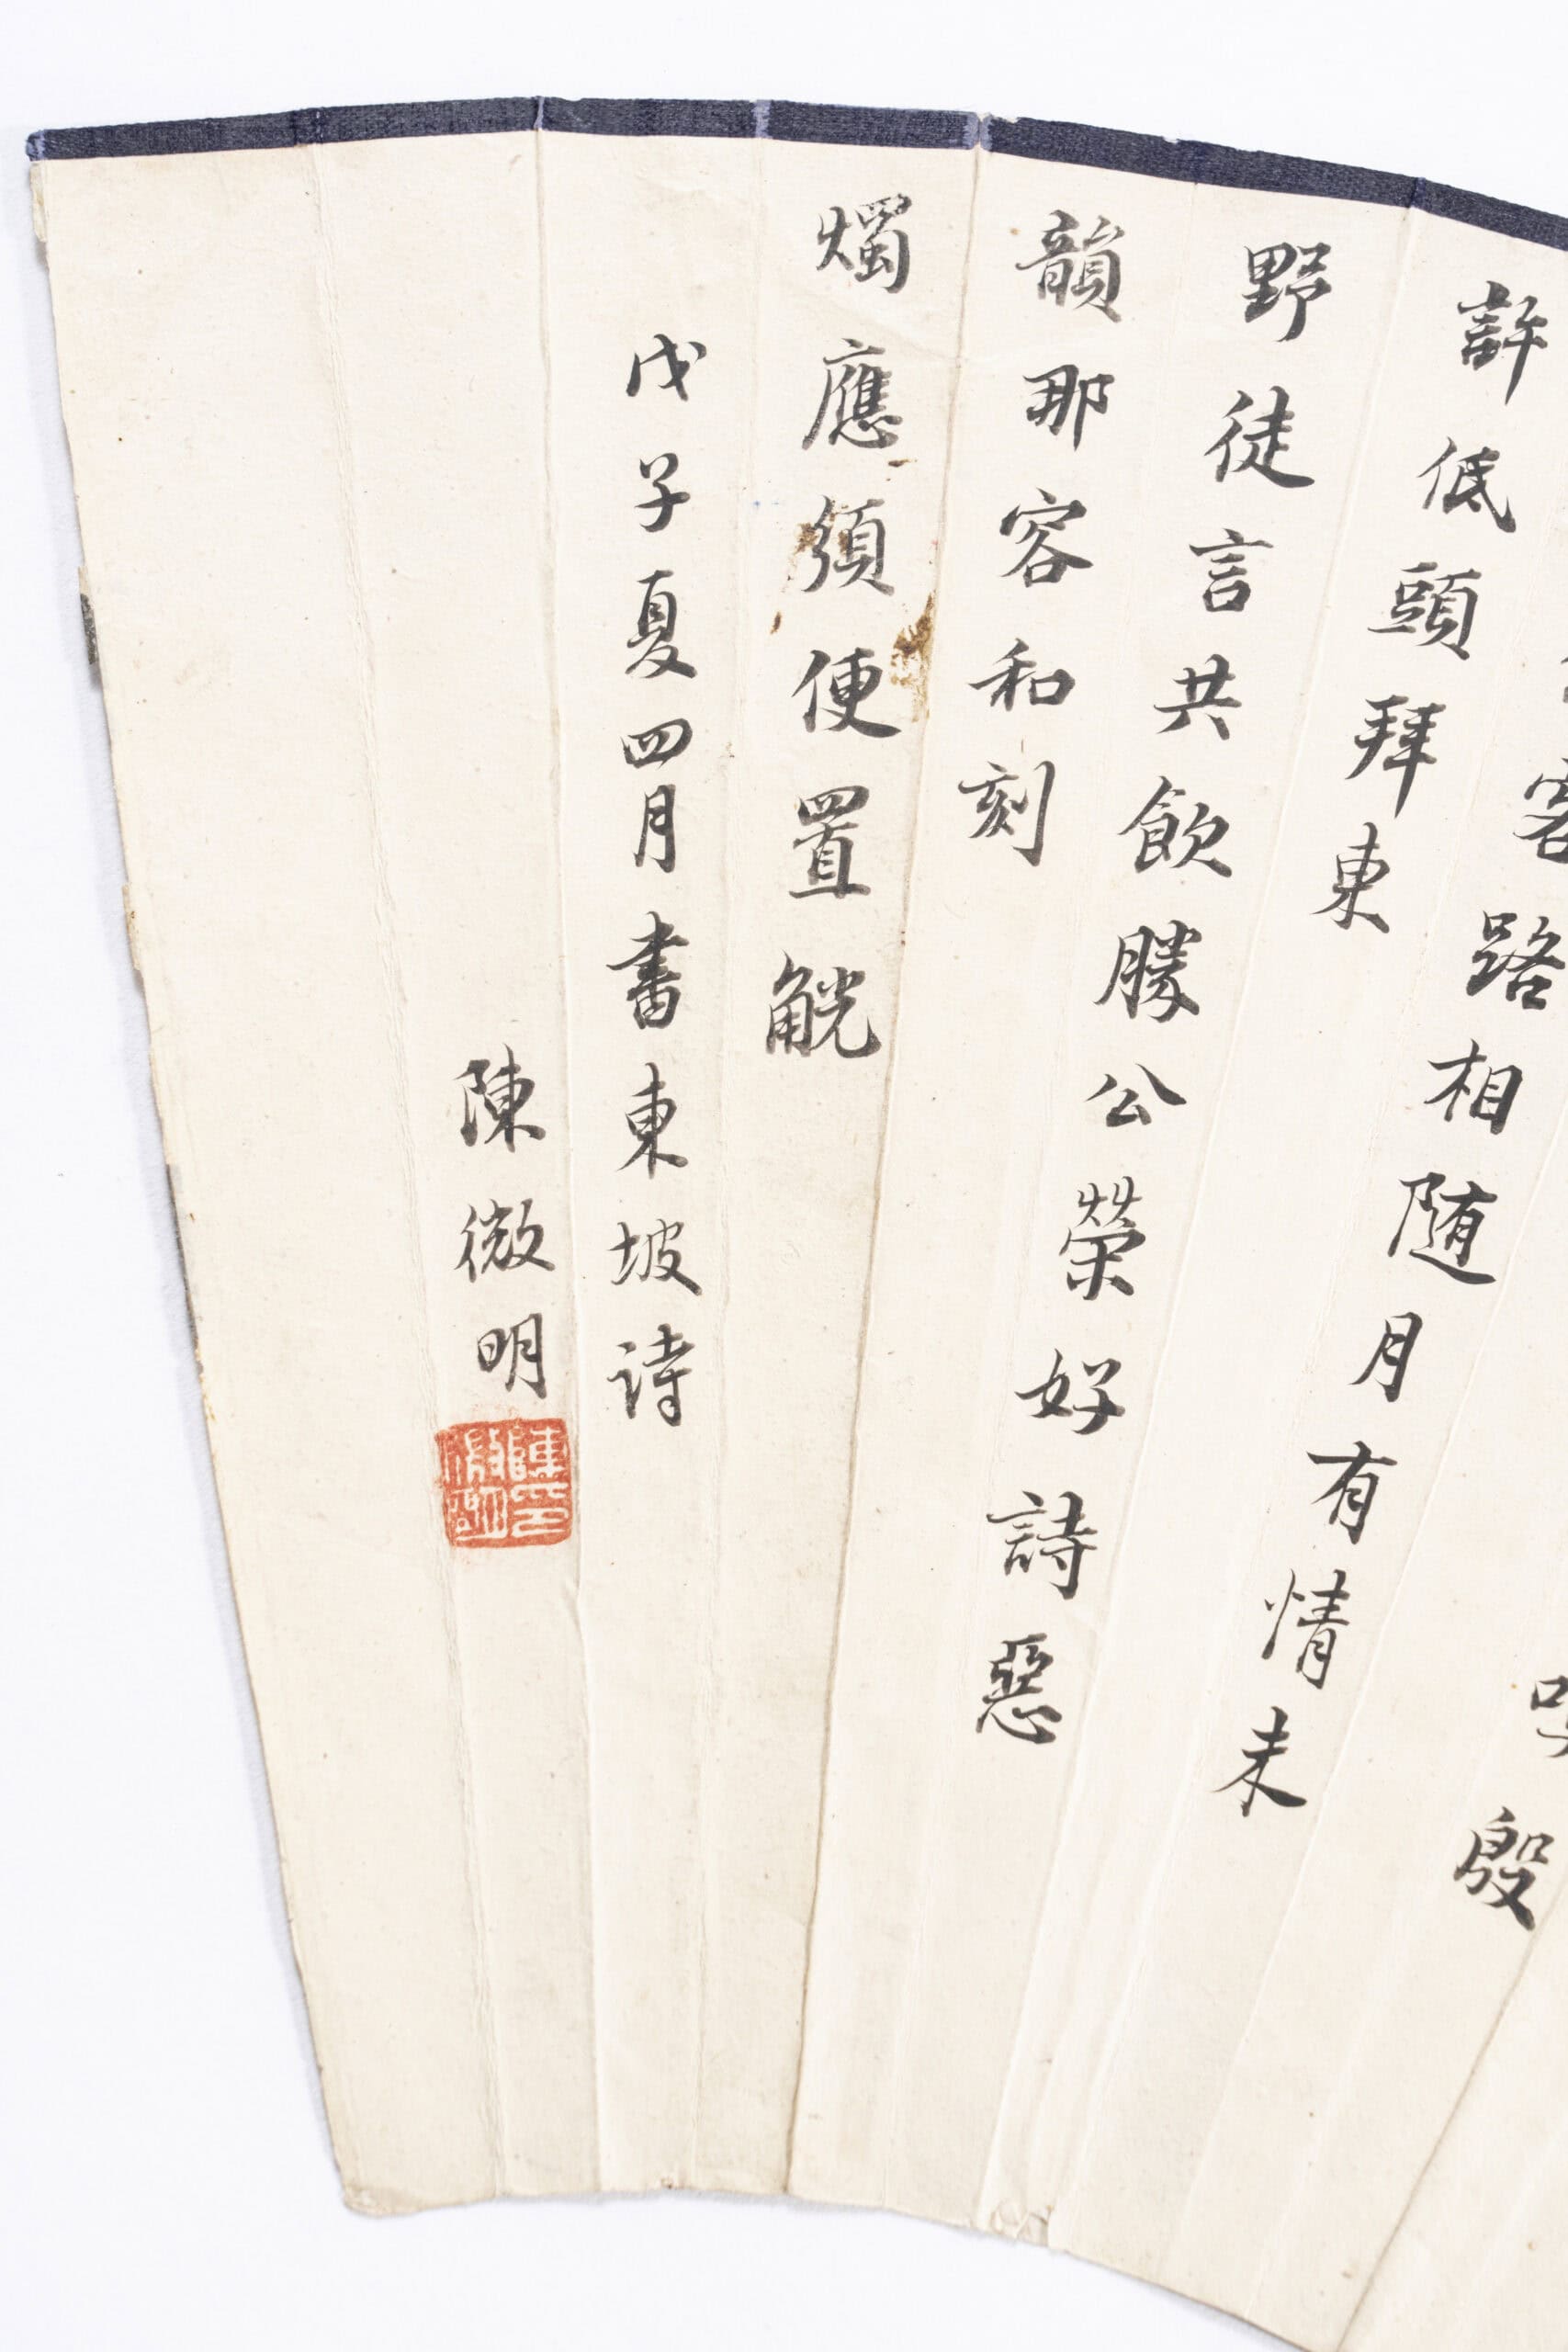 殷
客路相隨月有情未
許低頭拜東
野徒言共飲勝公榮好詩惡
韻那容和刻
燭應須便置觥
戊子夏四月書東坡詩
陳微明
陳印微明